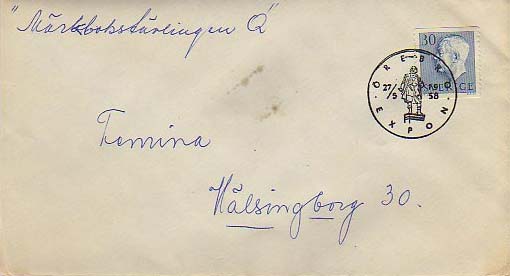 "Märkbokstävlingen Q"
30
SVERIGE
ÖREBRO
27/9 19 58
EXPON
Femina
Hälsingborg 30.